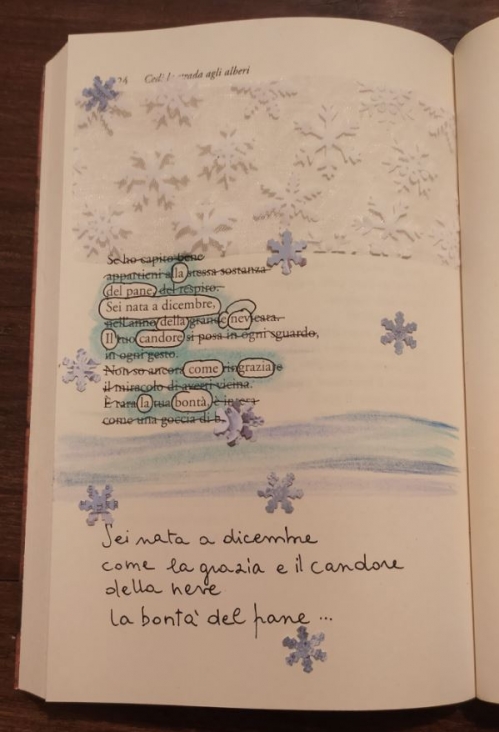 24 Cedi la strada agli alberi
Se ho capito bene
appartieni alla stessa sostanza
del pane, del respiro.
Sei nata a dicembre,
nell'anno della grande nevicata.
Il tuo candore si posa in ogni sguardo,
in ogni gesto.
Non so ancora come ringraziare
il miracolo di averti vicina.
È rara la tua bontà, è intesa
come una goccia di
Sei nata a dicembre
come la grazia e il candore
della neve
la bontà del pane ...